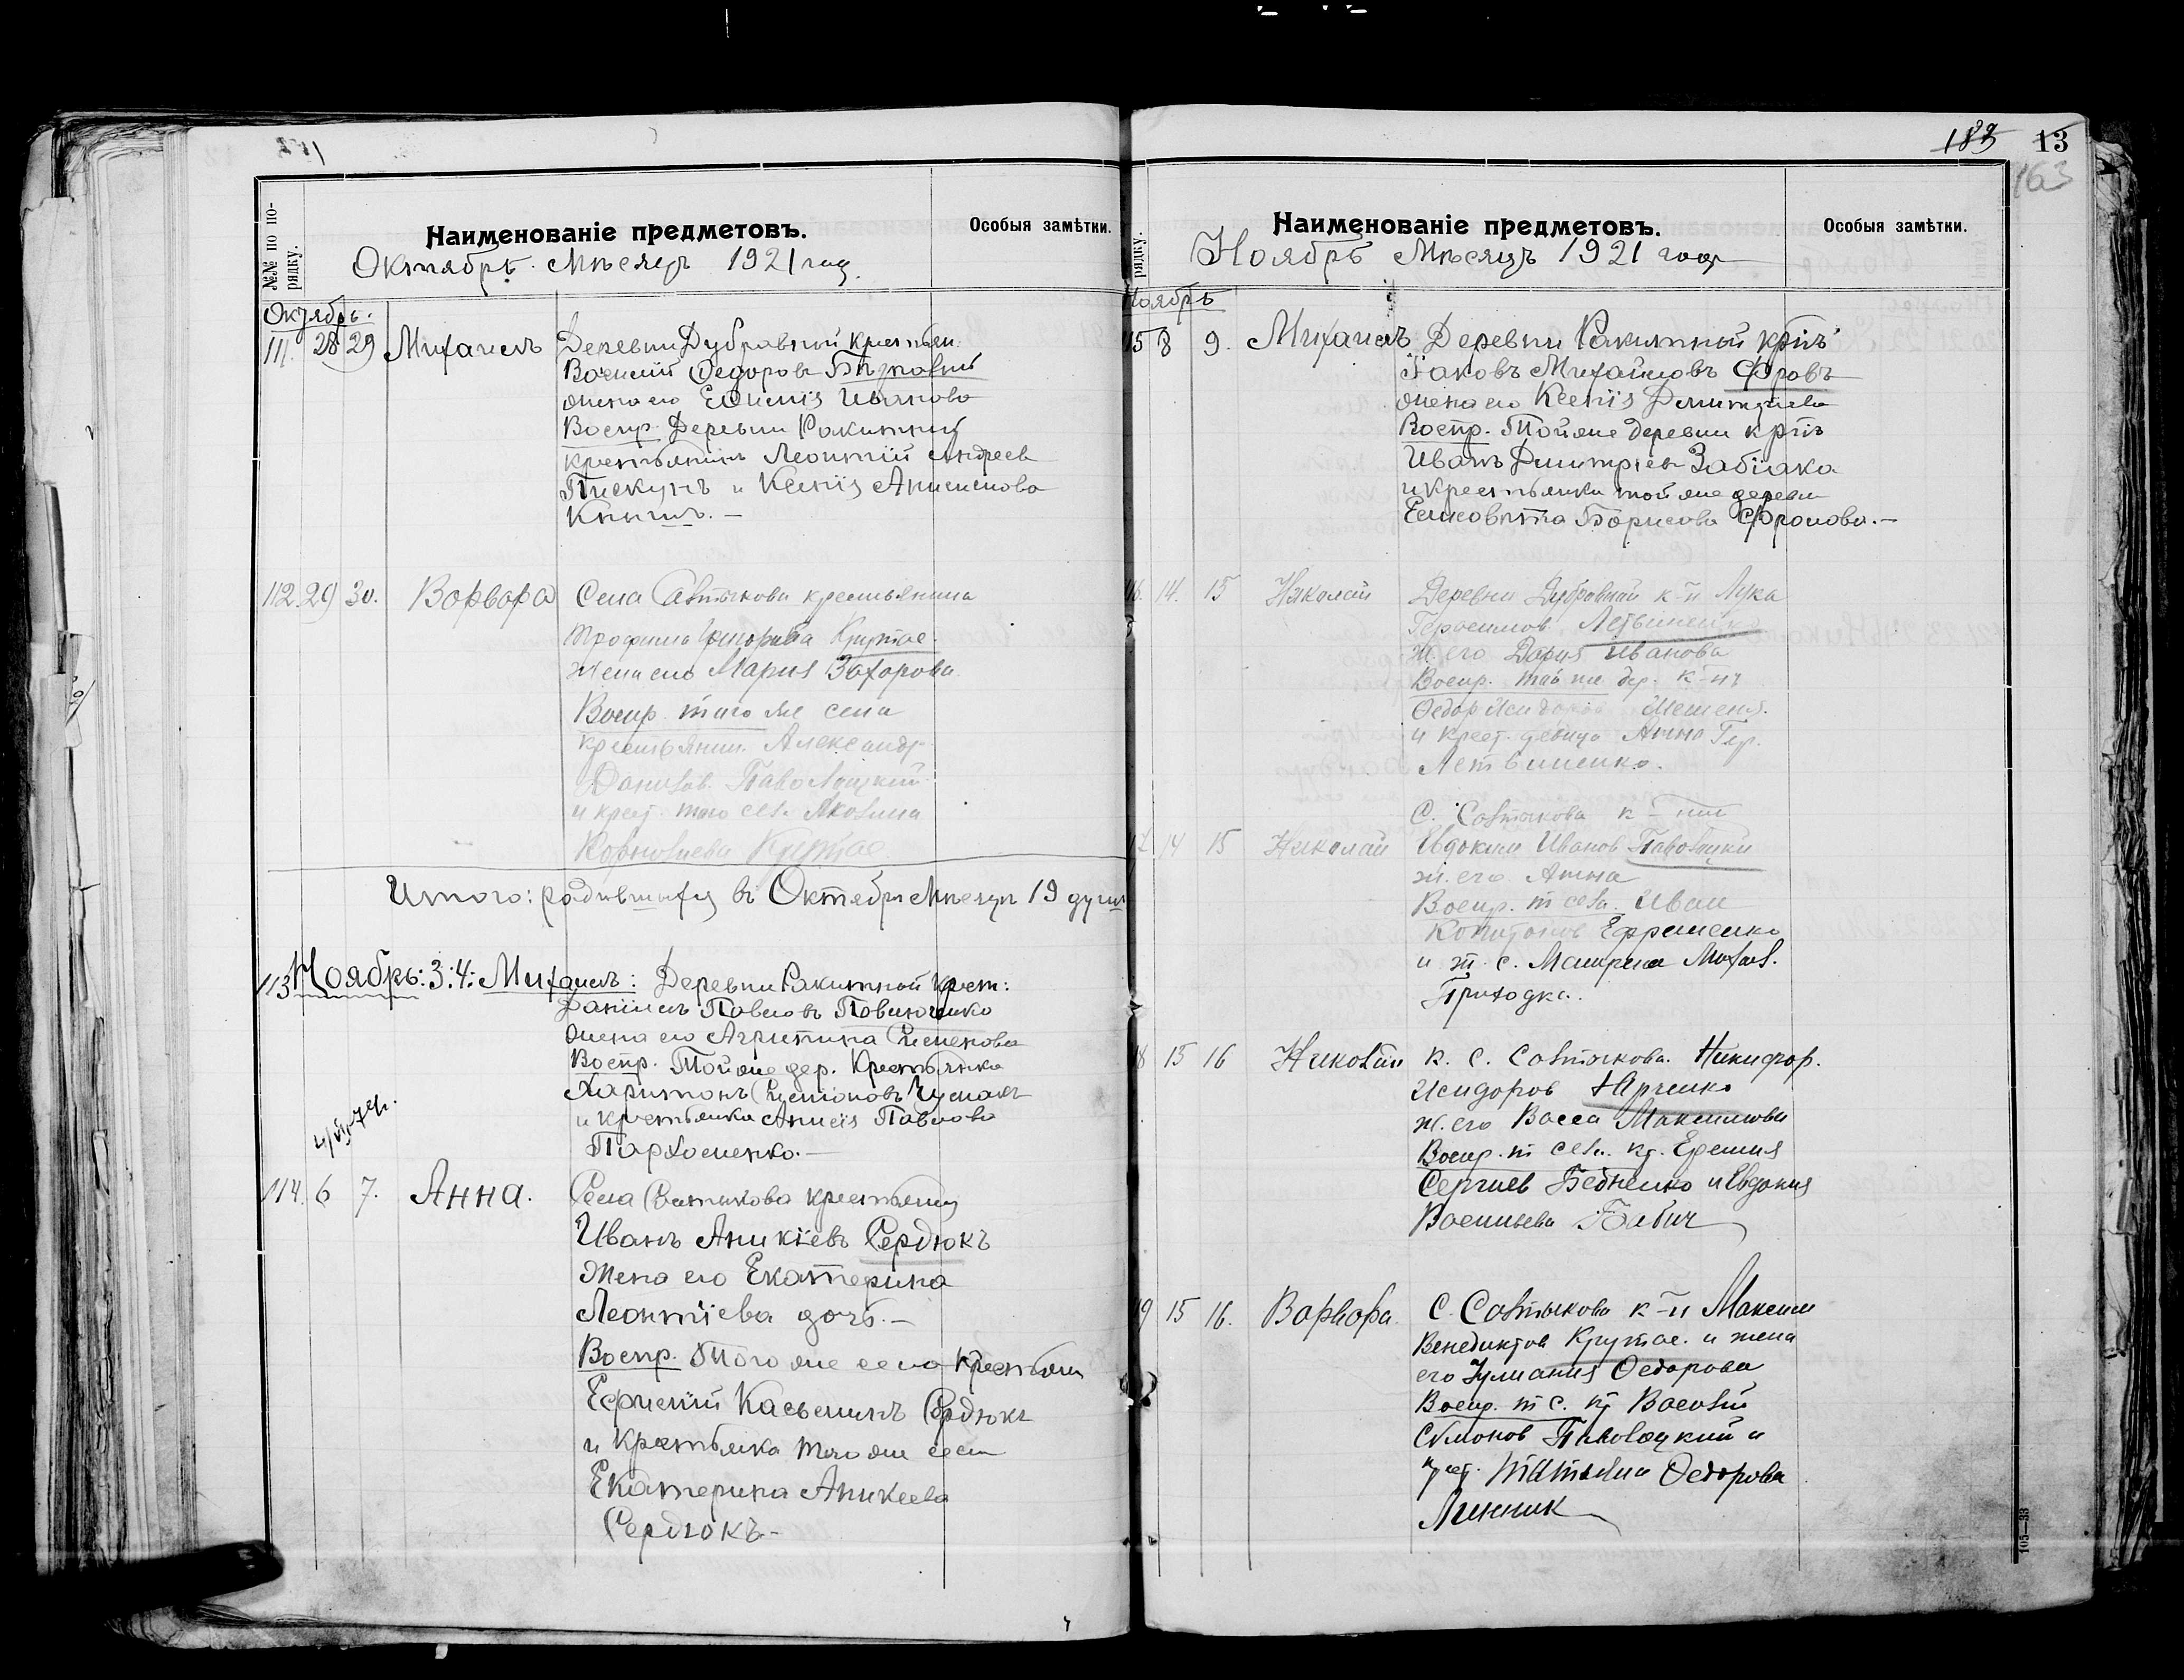 №№ по порядку.
Наименованіе предметовъ.
Особыя замѣтки.
Октябрь Мѣсяцъ 1921 год
Октябрь.
111. 28 29 Михаилъ Деревни Дубравный Крестьян.
Василій Федоровъ
жена его Ефимія Иванова
Воспр. Деревни Ракитный
крестьянинъ Леонтій Андреев
Пискунъ и Ксенія Анисимова
112. 29 30. Варвара Села Савтыкова крестьянина
Трофима Григорьева Крутае.
Жена его Мария Захарова
Воспр. того же села
крестьянин. Александр
Данилов. Паволоцкий
и крест. того села Яковлина
Корнилиева Крутае
Итого: родившихся въ Октябрѣ Мѣсяцѣ 19 душ
113 Ноябрь: 3: 4: Михаилъ: Деревни Ракитной крест:
Даніилъ Павловъ Павлюченко
жена его Агрипина Симонова
Воспр. Той же дер. Крестьянка
Харитонъ Симоновъ Чумакъ
и крестьянка Анисія Павлова
Пархоменко. —
114. 6 7. Анна. Села Савтикова крестьянин
Иванъ Аникіевъ Сердюкъ
Жена его Екатерина
Леонтіева дочь. —
Воспр. Того же села Крестьян
Ефимій Касьянинъ Сердюкъ
и Крестьянка того же села
Екатерина Аникеева
Сердюкъ. —
183 13
163
рядку.
Наименованіе предметовъ.
Особыя замѣтки.
Ноябрь Мѣсяцъ 1921 года
Ноябрь
15 8 9. Михаилъ Деревни Ракитной крнъ
Іаковъ Михайловъ Фровъ
жена его Ксенія Димитріева
Воспр. Той же деревни крнъ
Иванъ Димитріев Забіака
и крестьянка той же деревни
Елисавета Борисова Фролова. —
16. 14. 15 Николай Деревни Дубравный к-н Лука
Герасимов. Летвиненко
ж. его Дария Иванова
Воспр. той же др. к-нъ
Федор Исидоров
и крест. девица Анна Гер.
Летвиненко.
С. Савтыкова к-нин
17 14 15 Николай Евдоким Иванов Паволоцки
ж. его Анна
Воспр. т села. Иван
Капитонов Ефременко
и т. с. Маврина Михаил.
Приходка.
18 15 16 Николай к. С. Савтыкова. Никифор.
Исидоров Юрченко
ж. его Васса Максимова
Воспр. т села. кр. Еремия
Сергиев Бедненко и Евдокия
Васильева Бабич
19 15 16. Варвара С. Савтыкова к-н Максим
Венедиктов Крутае. и жена
его Иулиания Федорова
Воспр. т с. кр Василий
Симонов Паволоцкий и
крест. Татьяна Федорова
Линник
105—33